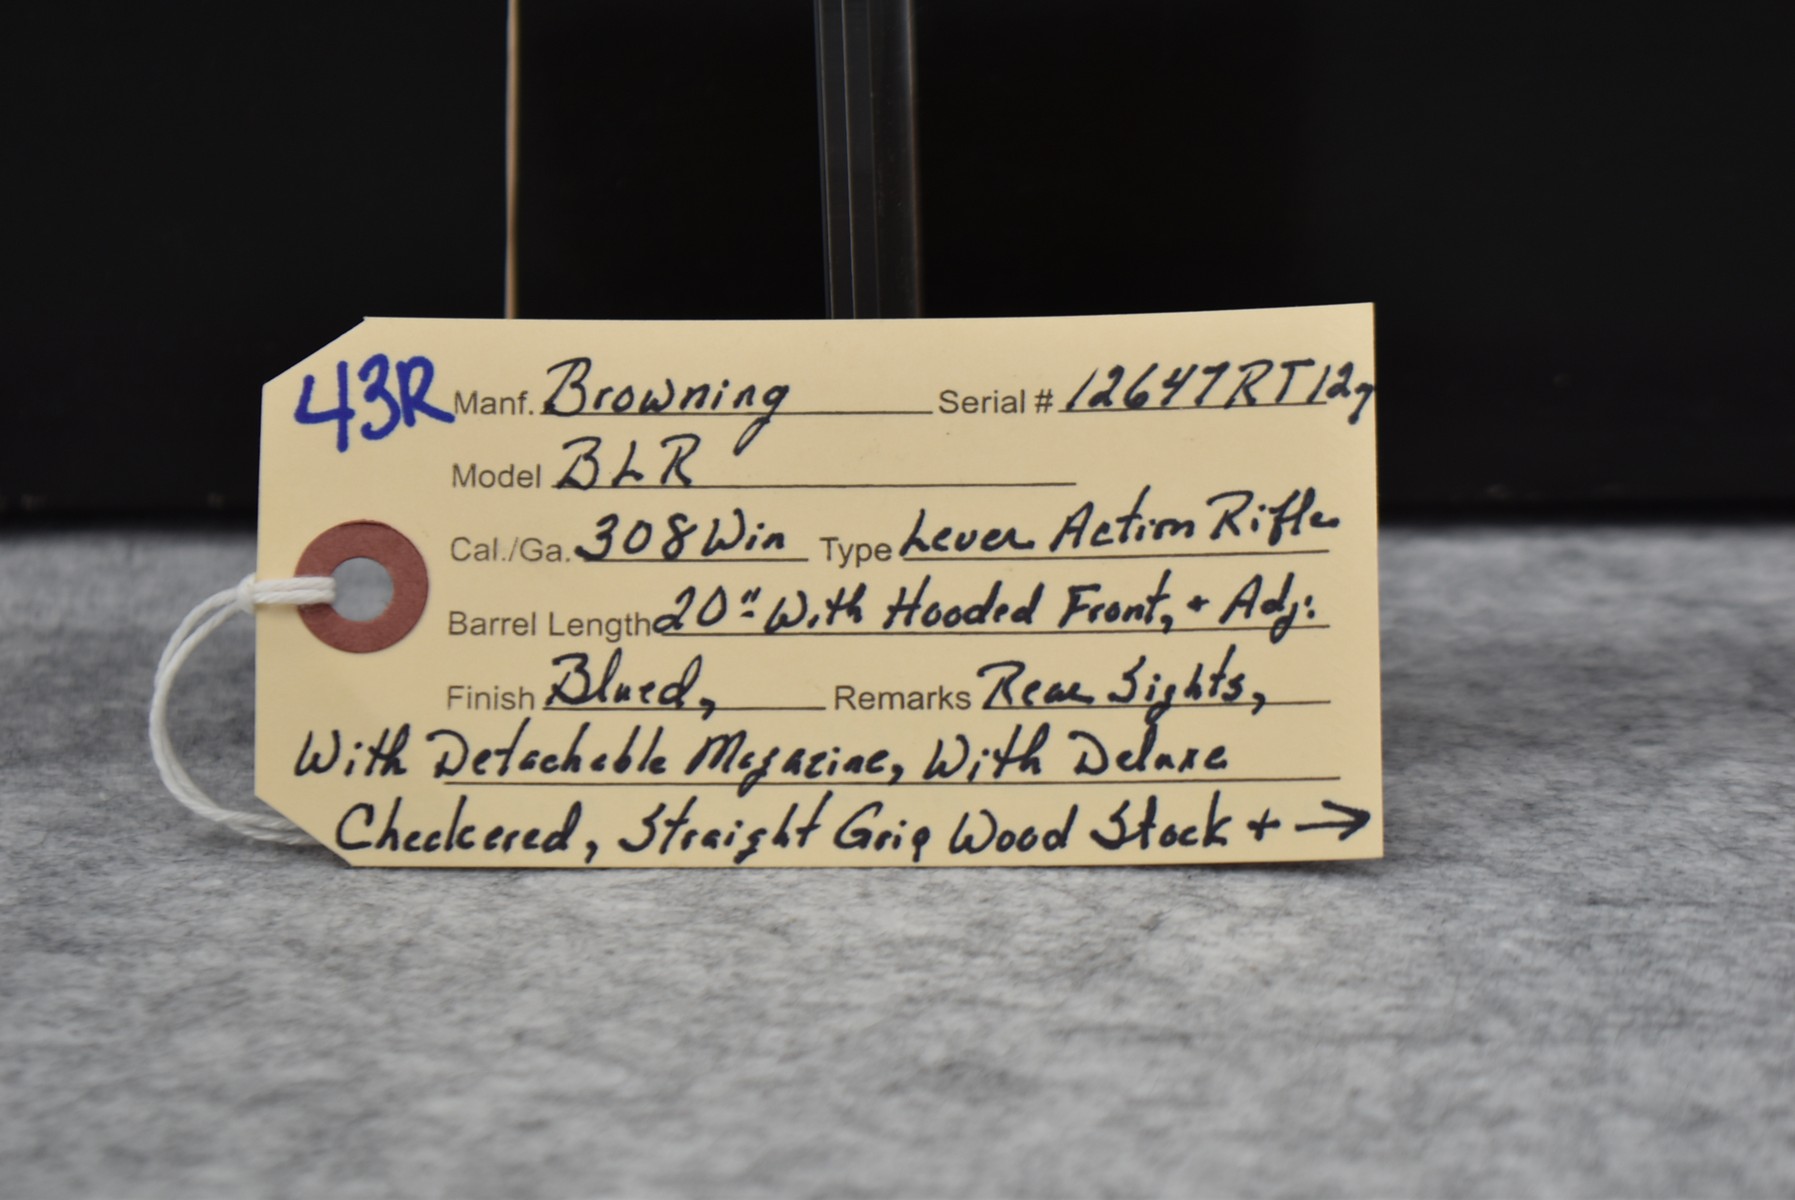 43R Manf. Browning Serial # 12647RT127
Model BLR
Cal./Ga. 308 Win Type Lever Action Rifle
Barrel Length 20" With Hooded Front, + Adj.
Finish Blued, Remarks Rear Sights,
With Detachable Magazine, With Deluxe
Checkered, Straight Grip Wood Stock + →